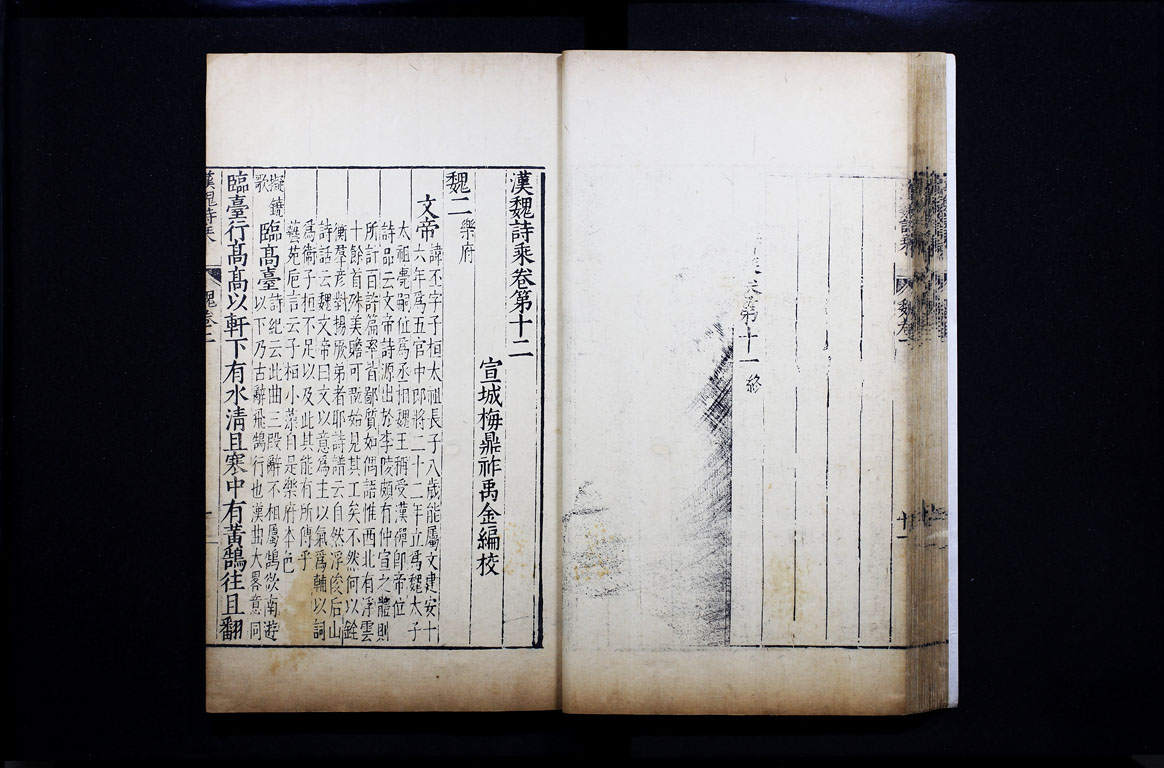 第十一終
魏卷一
十一
漢魏詩乘卷第十二
宣城梅鼎祚禹金編校
魏二樂府
文帝諱丕字子桓太祖長子八歲能屬文建安十
六年爲五官中郎將二十二年立爲魏太子
太祖薨嗣位爲丞相魏王稱受漢禪卽帝位
詩品云文帝詩源出於李陵頗有仲宣之體則
所計百許篇率皆鄙質如偶語惟西北有浮雲
十餘首殊美贍可翫始見其工矣不然何以銓
衡羣彥對揚厥弟者耶詩譜云自然浮俊后山
詩話云魏文帝曰文以意爲主以氣爲輔以詞
爲衞子桓不足以及此其能有所傳乎
藝苑巵言云子桓小藻自是樂府本色
擬鐃歌
臨高臺詩紀云此曲三段辭不相屬鵠欲南遊
以下乃古辭飛鵠行也漢曲大畧意同
臨臺行高高以軒下有水清且寒中有黃鵠往且翻
漢魏詩乘
魏卷二